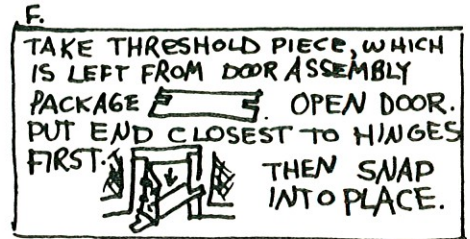 F.
TAKE THRESHOLD PIECE, WHICH
IS LEFT FROM DOOR ASSEMBLY
PACKAGE . OPEN DOOR.
PUT END CLOSEST TO HINGES
FIRST. THEN SNAP
INTO PLACE.